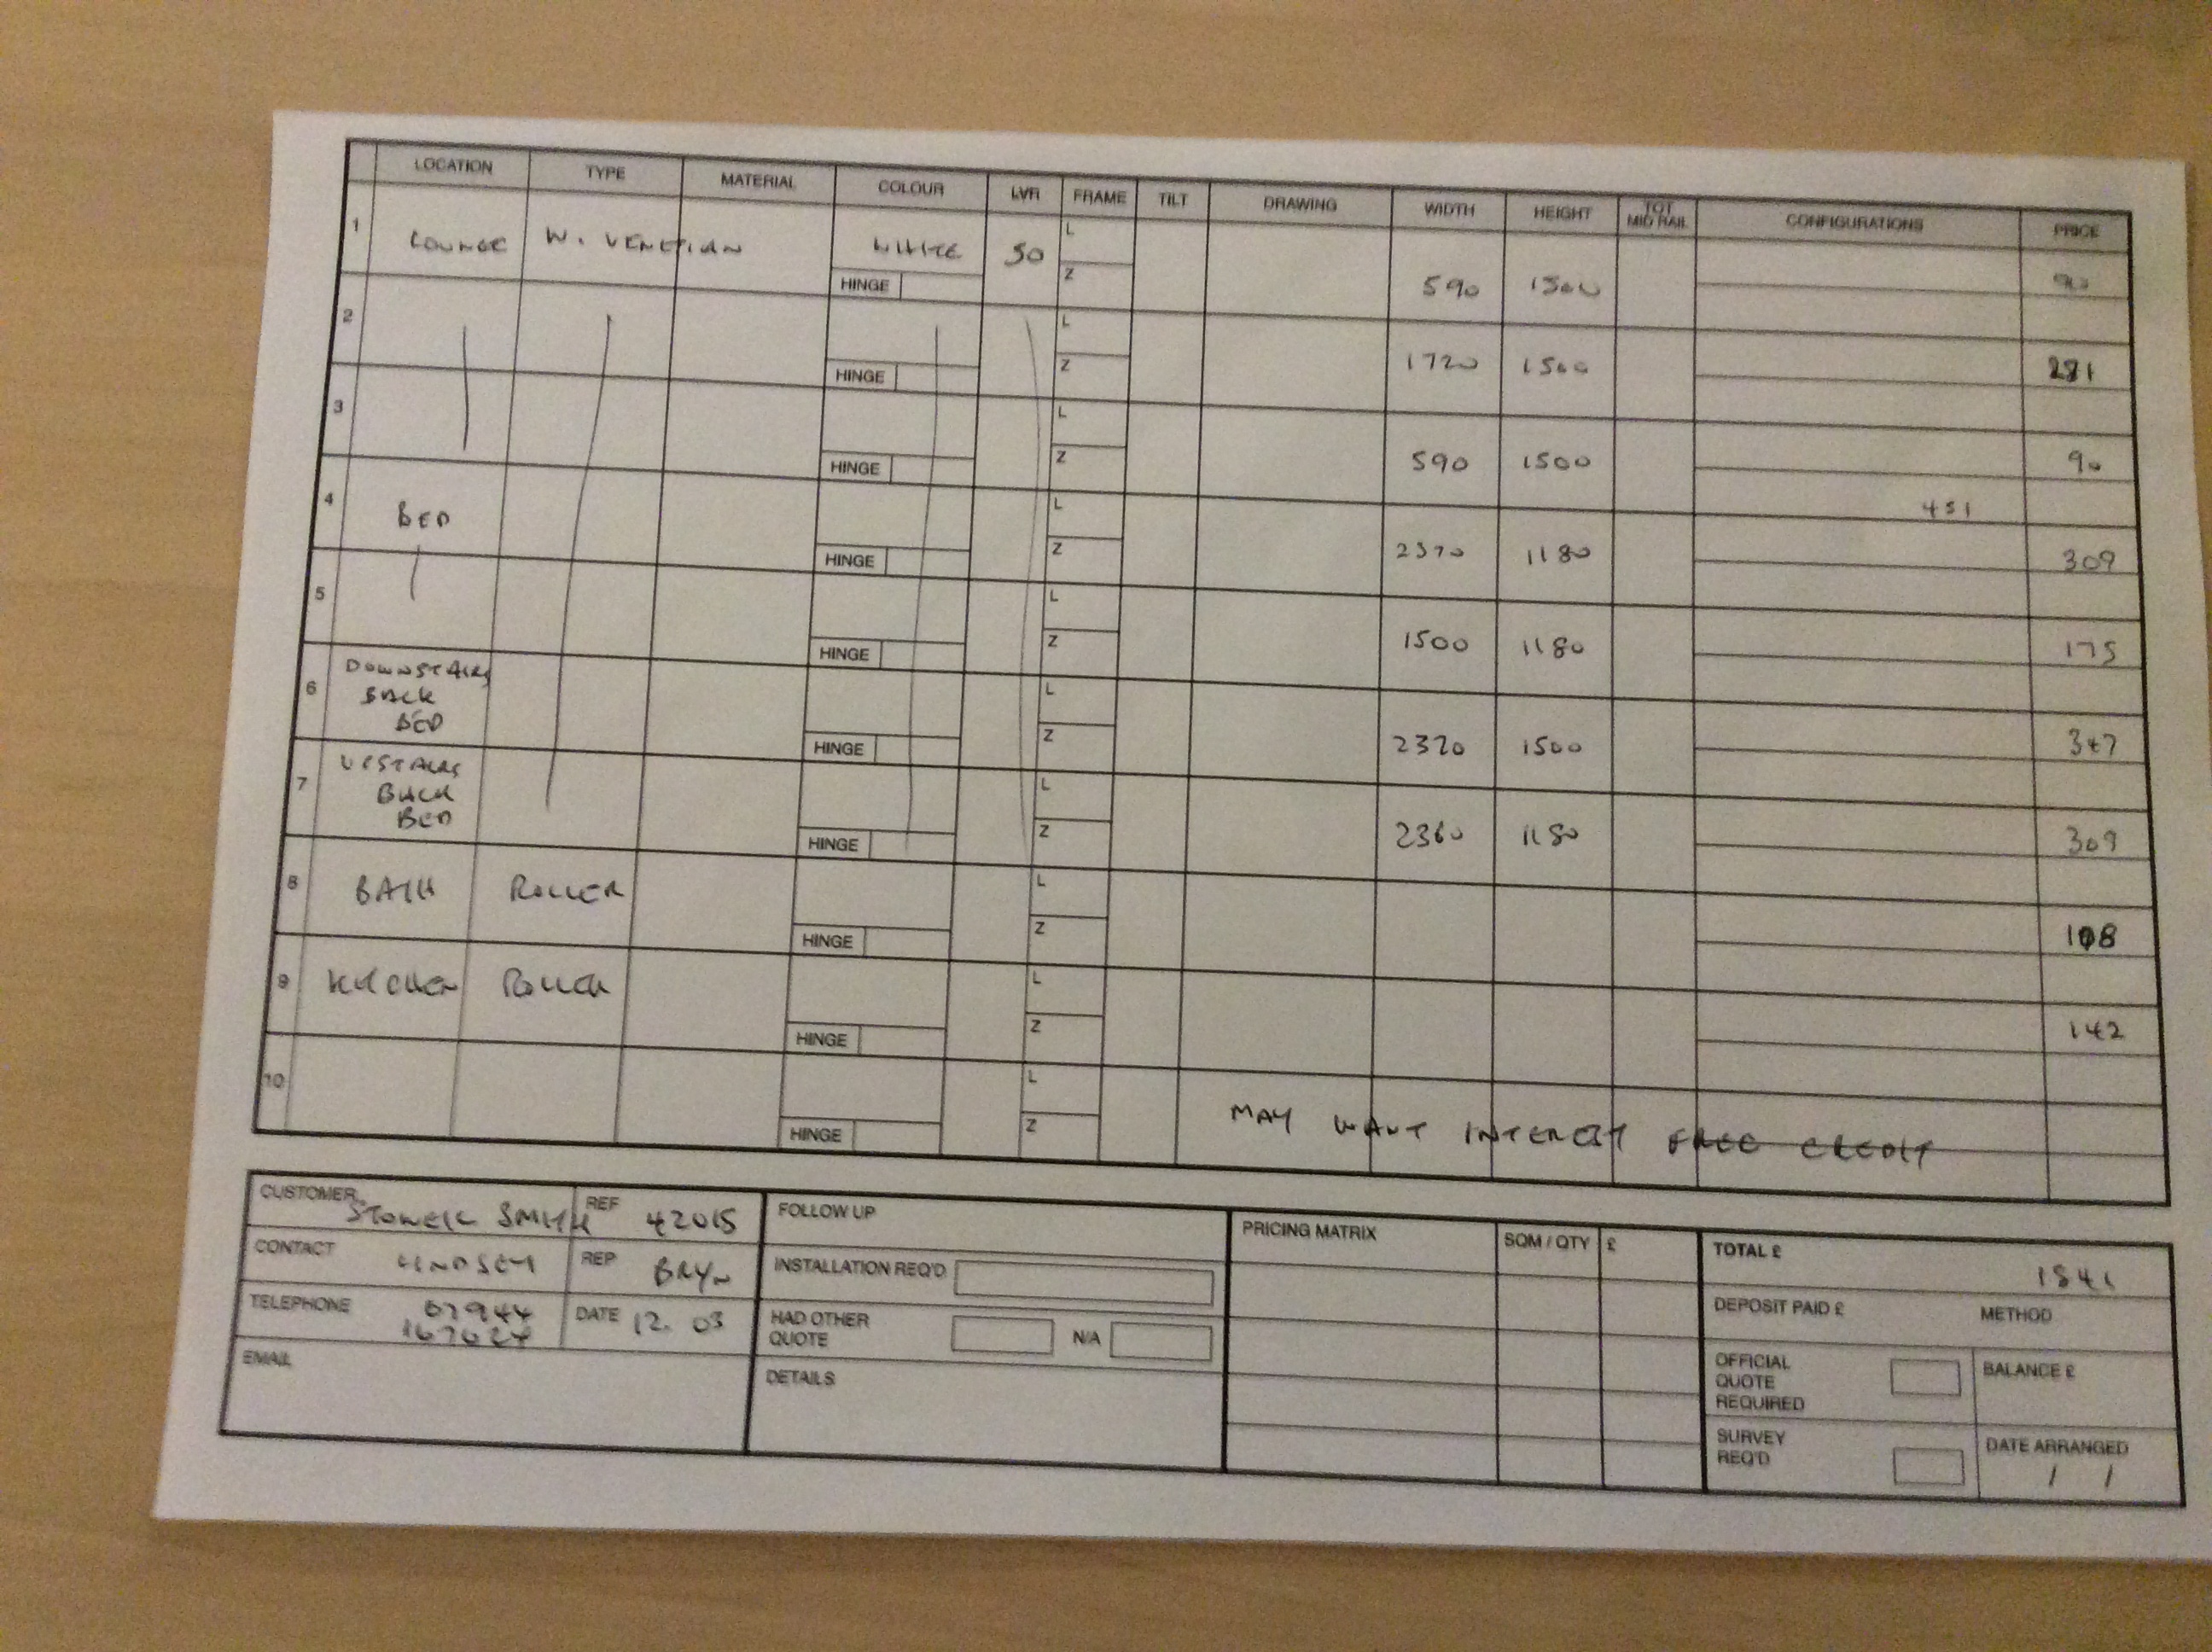 LOCATION TYPE MATERIAL COLOUR LVR FRAME TILT DRAWING WIDTH HEIGHT TOT MID RAIL CONFIGURATIONS PRICE
1 LOUNGE W. VENETIAN WHITE 50 L
HINGE Z 590 1500 90
2 L
HINGE Z 1720 1500 281
3 L
HINGE Z 590 1500 90
4 BED L 451
HINGE Z 2370 1180 309
5 L
HINGE Z 1500 1180 175
DOWNSTAIRS
6 BACK L
BED
HINGE Z 2320 1500 347
UPSTAIRS
7 BACK L
BED
HINGE Z 2360 1180 309
8 BATH ROLLER L
HINGE Z 108
9 KITCHEN ROLLER L
HINGE Z 142
10 L
HINGE Z
MAY WANT INTEREST FREE CREDIT
CUSTOMER SMITH REF 42015
CONTACT LINDSEY REP BRYN
TELEPHONE 07944
DATE 12.03
EMAIL
FOLLOW UP
INSTALLATION REQ'D
HAD OTHER
QUOTE N/A
DETAILS
PRICING MATRIX SQM / QTY £
TOTAL £ 1841
DEPOSIT PAID £ METHOD
OFFICIAL
QUOTE
REQUIRED
BALANCE £
SURVEY
REQ'D
DATE ARRANGED
/ /